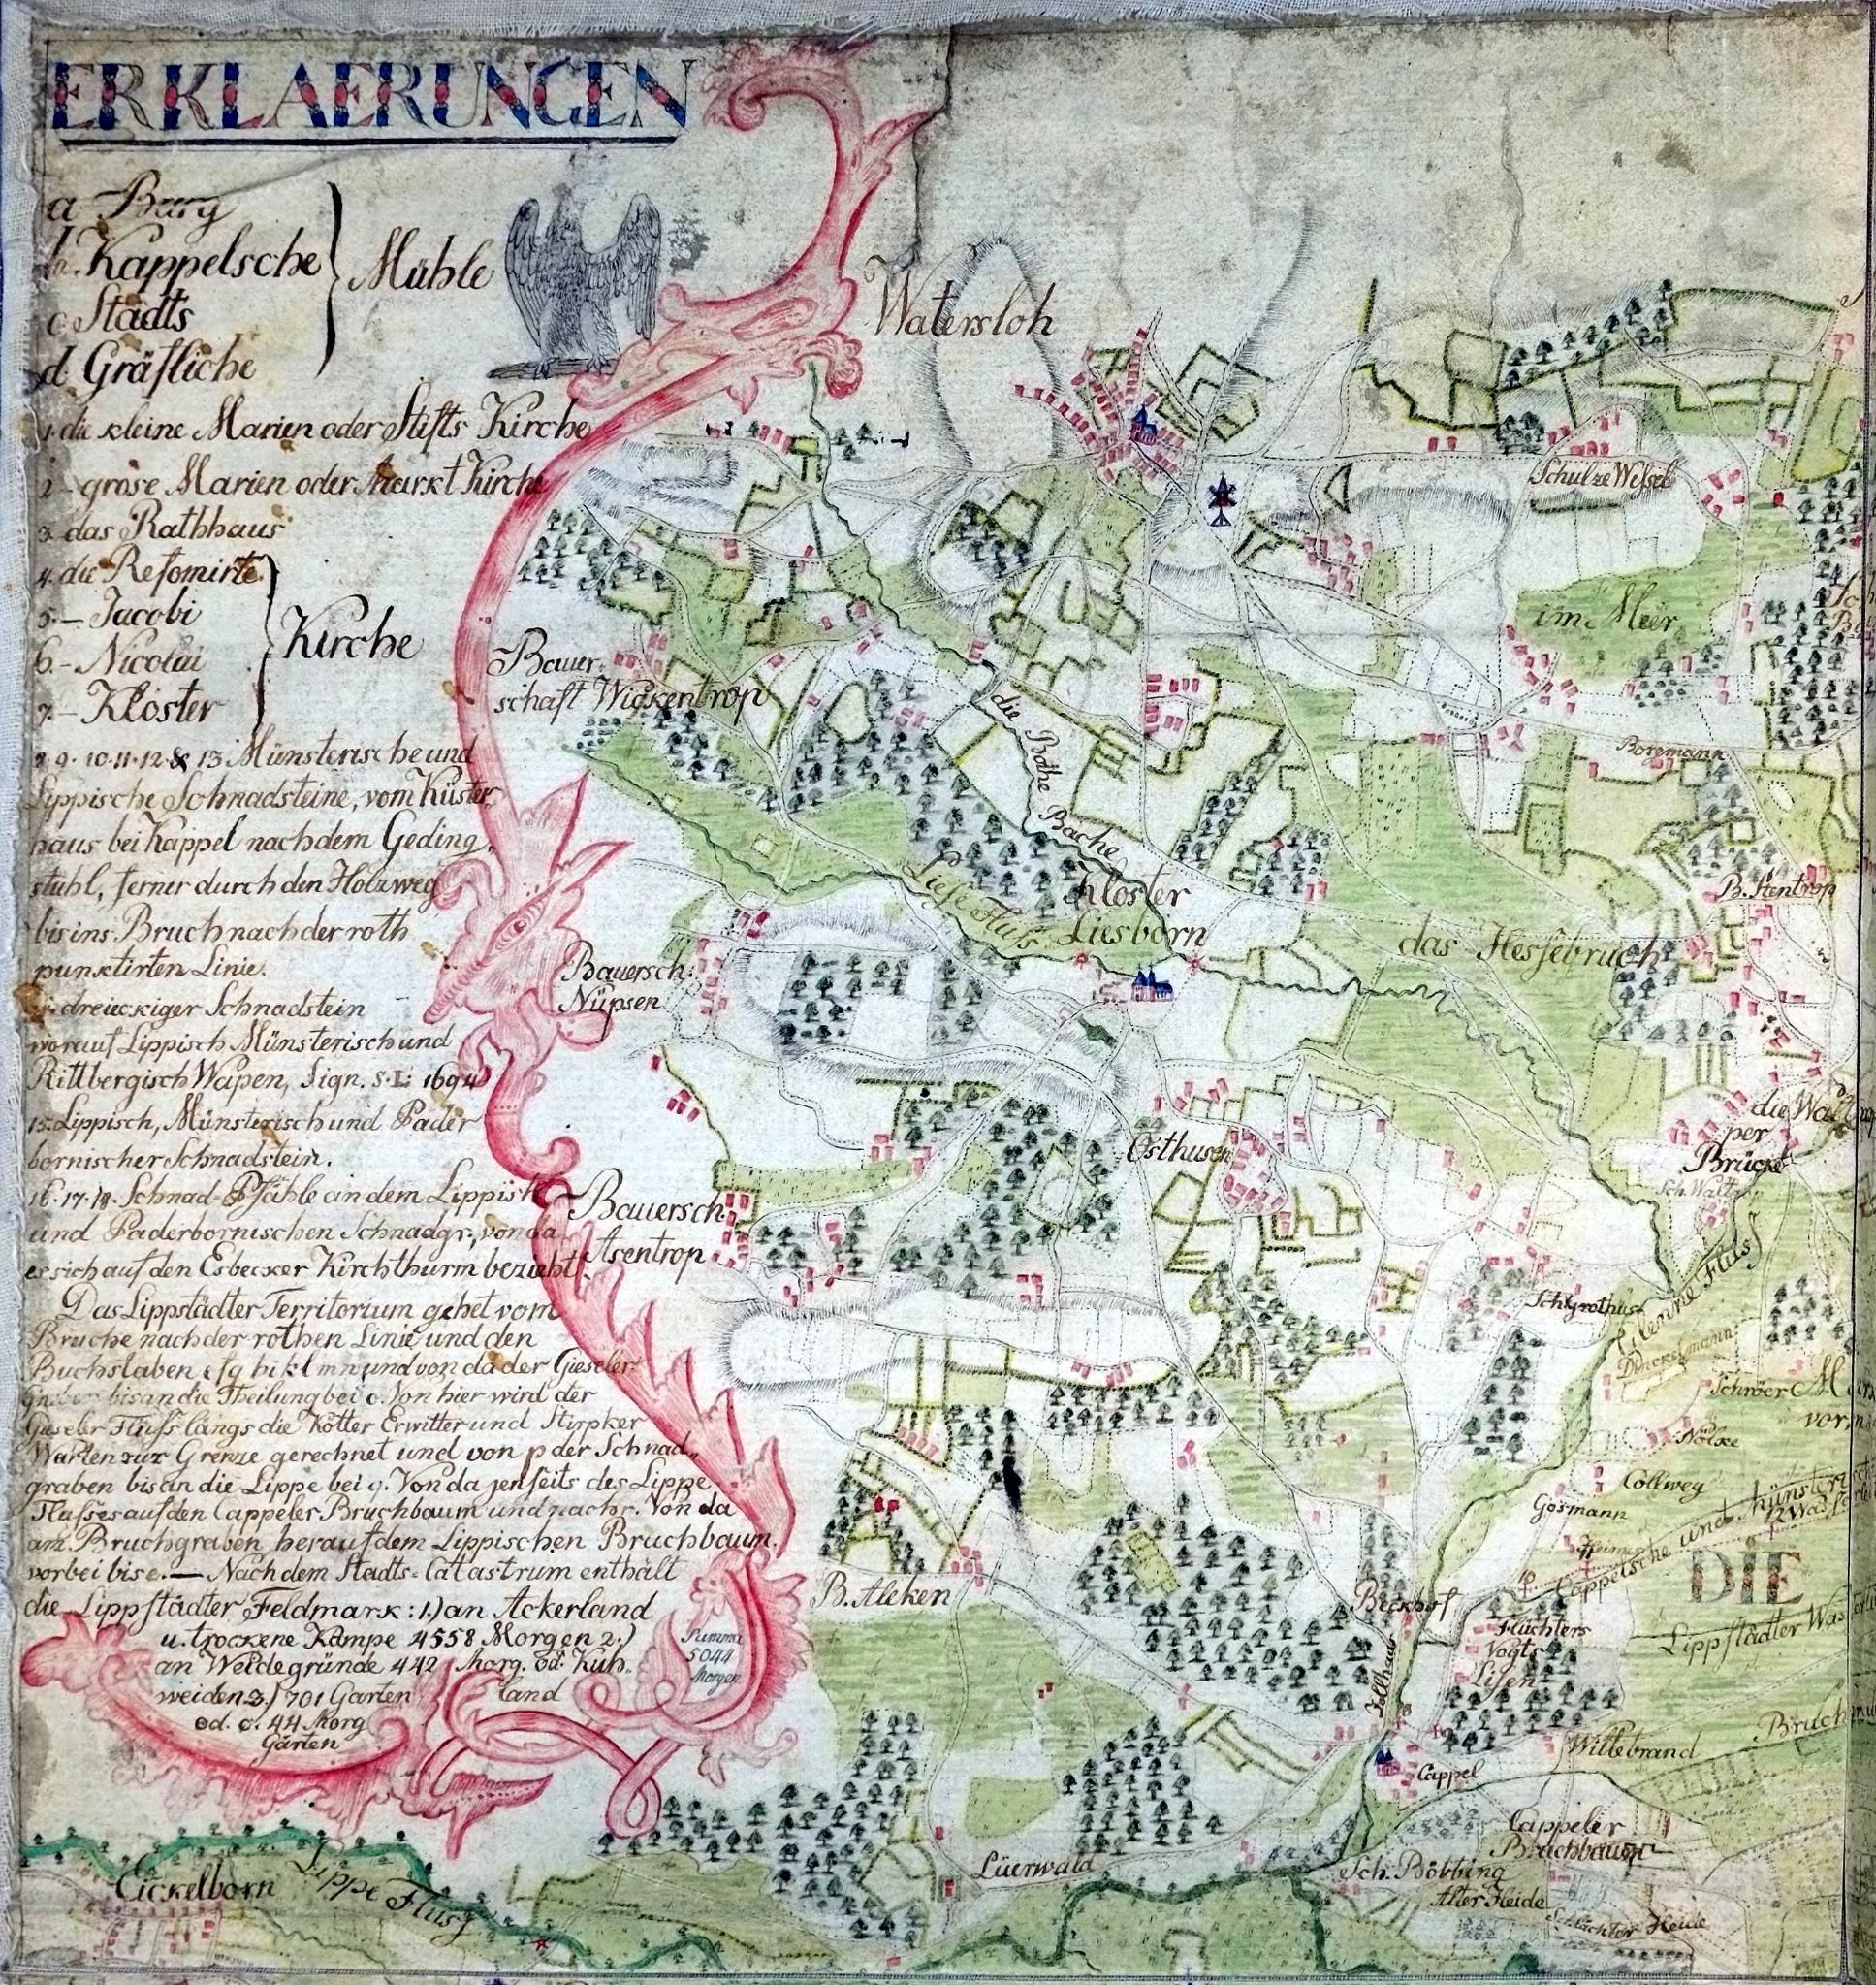 ERKLAERUNGEN
a Burg
b. Kappelsche
c Stadts
d Gräfliche
Mühle
1. die kleine Marien oder Stifts Kirche
2 – grose Marien oder Markt Kirche
3. das Rathhaus
4. die Refomirte
5. – Jacobi
6. – Nicolai
7. – Kloster
Kirche
8 9. 10. 11. 12. & 13 Münsterische und
Lippische Schnadsteine, vom Küster
haus bei Kappel nach dem Geding,
stuhl, ferner durch den Holzweg
bis ins Bruch nach der roth
punktirten Linie.
dreieckiger Schnadstein
worauf Lippisch Münsterisch und
Rittbergisch Wapen, Sign. S. L: 1694
15. Lippisch, Münsterisch und Pader
bornischer Schnadstein.
16. 17. 18. Schnad-Pfähle an dem Lippisch
und Paderbornischen Schnadgr., von da
er sich auf den Esbecker Kirchthurm bezieht
Das Lippstädter Territorium gehet vom
Bruche nach der rothen Linie und den
Buchstaben e f g h i k l m n und von da der Gieseler
bis an die Theilung bei o. Von hier wird der
Gieseler Fluss längs die Kötter Erwitter und Stirpker
Warten zur Grenze gerechnet und von p der Schnad,,
graben bis an die Lippe bei q. Von da jenseits des Lippe
Flusses auf den Cappeler Bruchbaum und nach r. Von da
am Bruchgraben herauf dem Lippischen Bruchbaum
vorbei bis e. — Nach dem Stadts-Catastrum enthält
die Lippstädter Feldmark: 1.) an Ackerland
u. trockene Kämpe 4558 Morgen 2.)
an Weidegründe 442 Morg. od. Kuh,,
weiden 3.) 701 Garten land
od. c. 44 Morg
Gärten
Summa
5044
Morgen
Watersloh
Schulze Wessel
im Meer
Bauer-
schaft Wickentrop
die Rothe Bache
Borgmann
Liese Fluss
Kloster
Liesborn
B. Stentrop
das Hessebruch
Bauersch:
Nüpsen
Osthusen
die Wal
per
Brücke
Sch. Waltr
Bauersch.
Asentrop
Sch. Grothus
Glenne Fluss
Dinckelmann
Schröer
vor
Nölke
Collweg
Gösmann
Cappelsche und Münster
DIE
Lippstädter Wa
B. Aleken
Beckhof
Flüchters
Vogts
Lisen
Zollhaus
Willebrand
Bruch
Cappel
Cappeler
Bruchbaum
Lüerwald
Sch. Böbbing
Alter Heide
Schlachter Heide
Eickelborn
Lippe Fluss